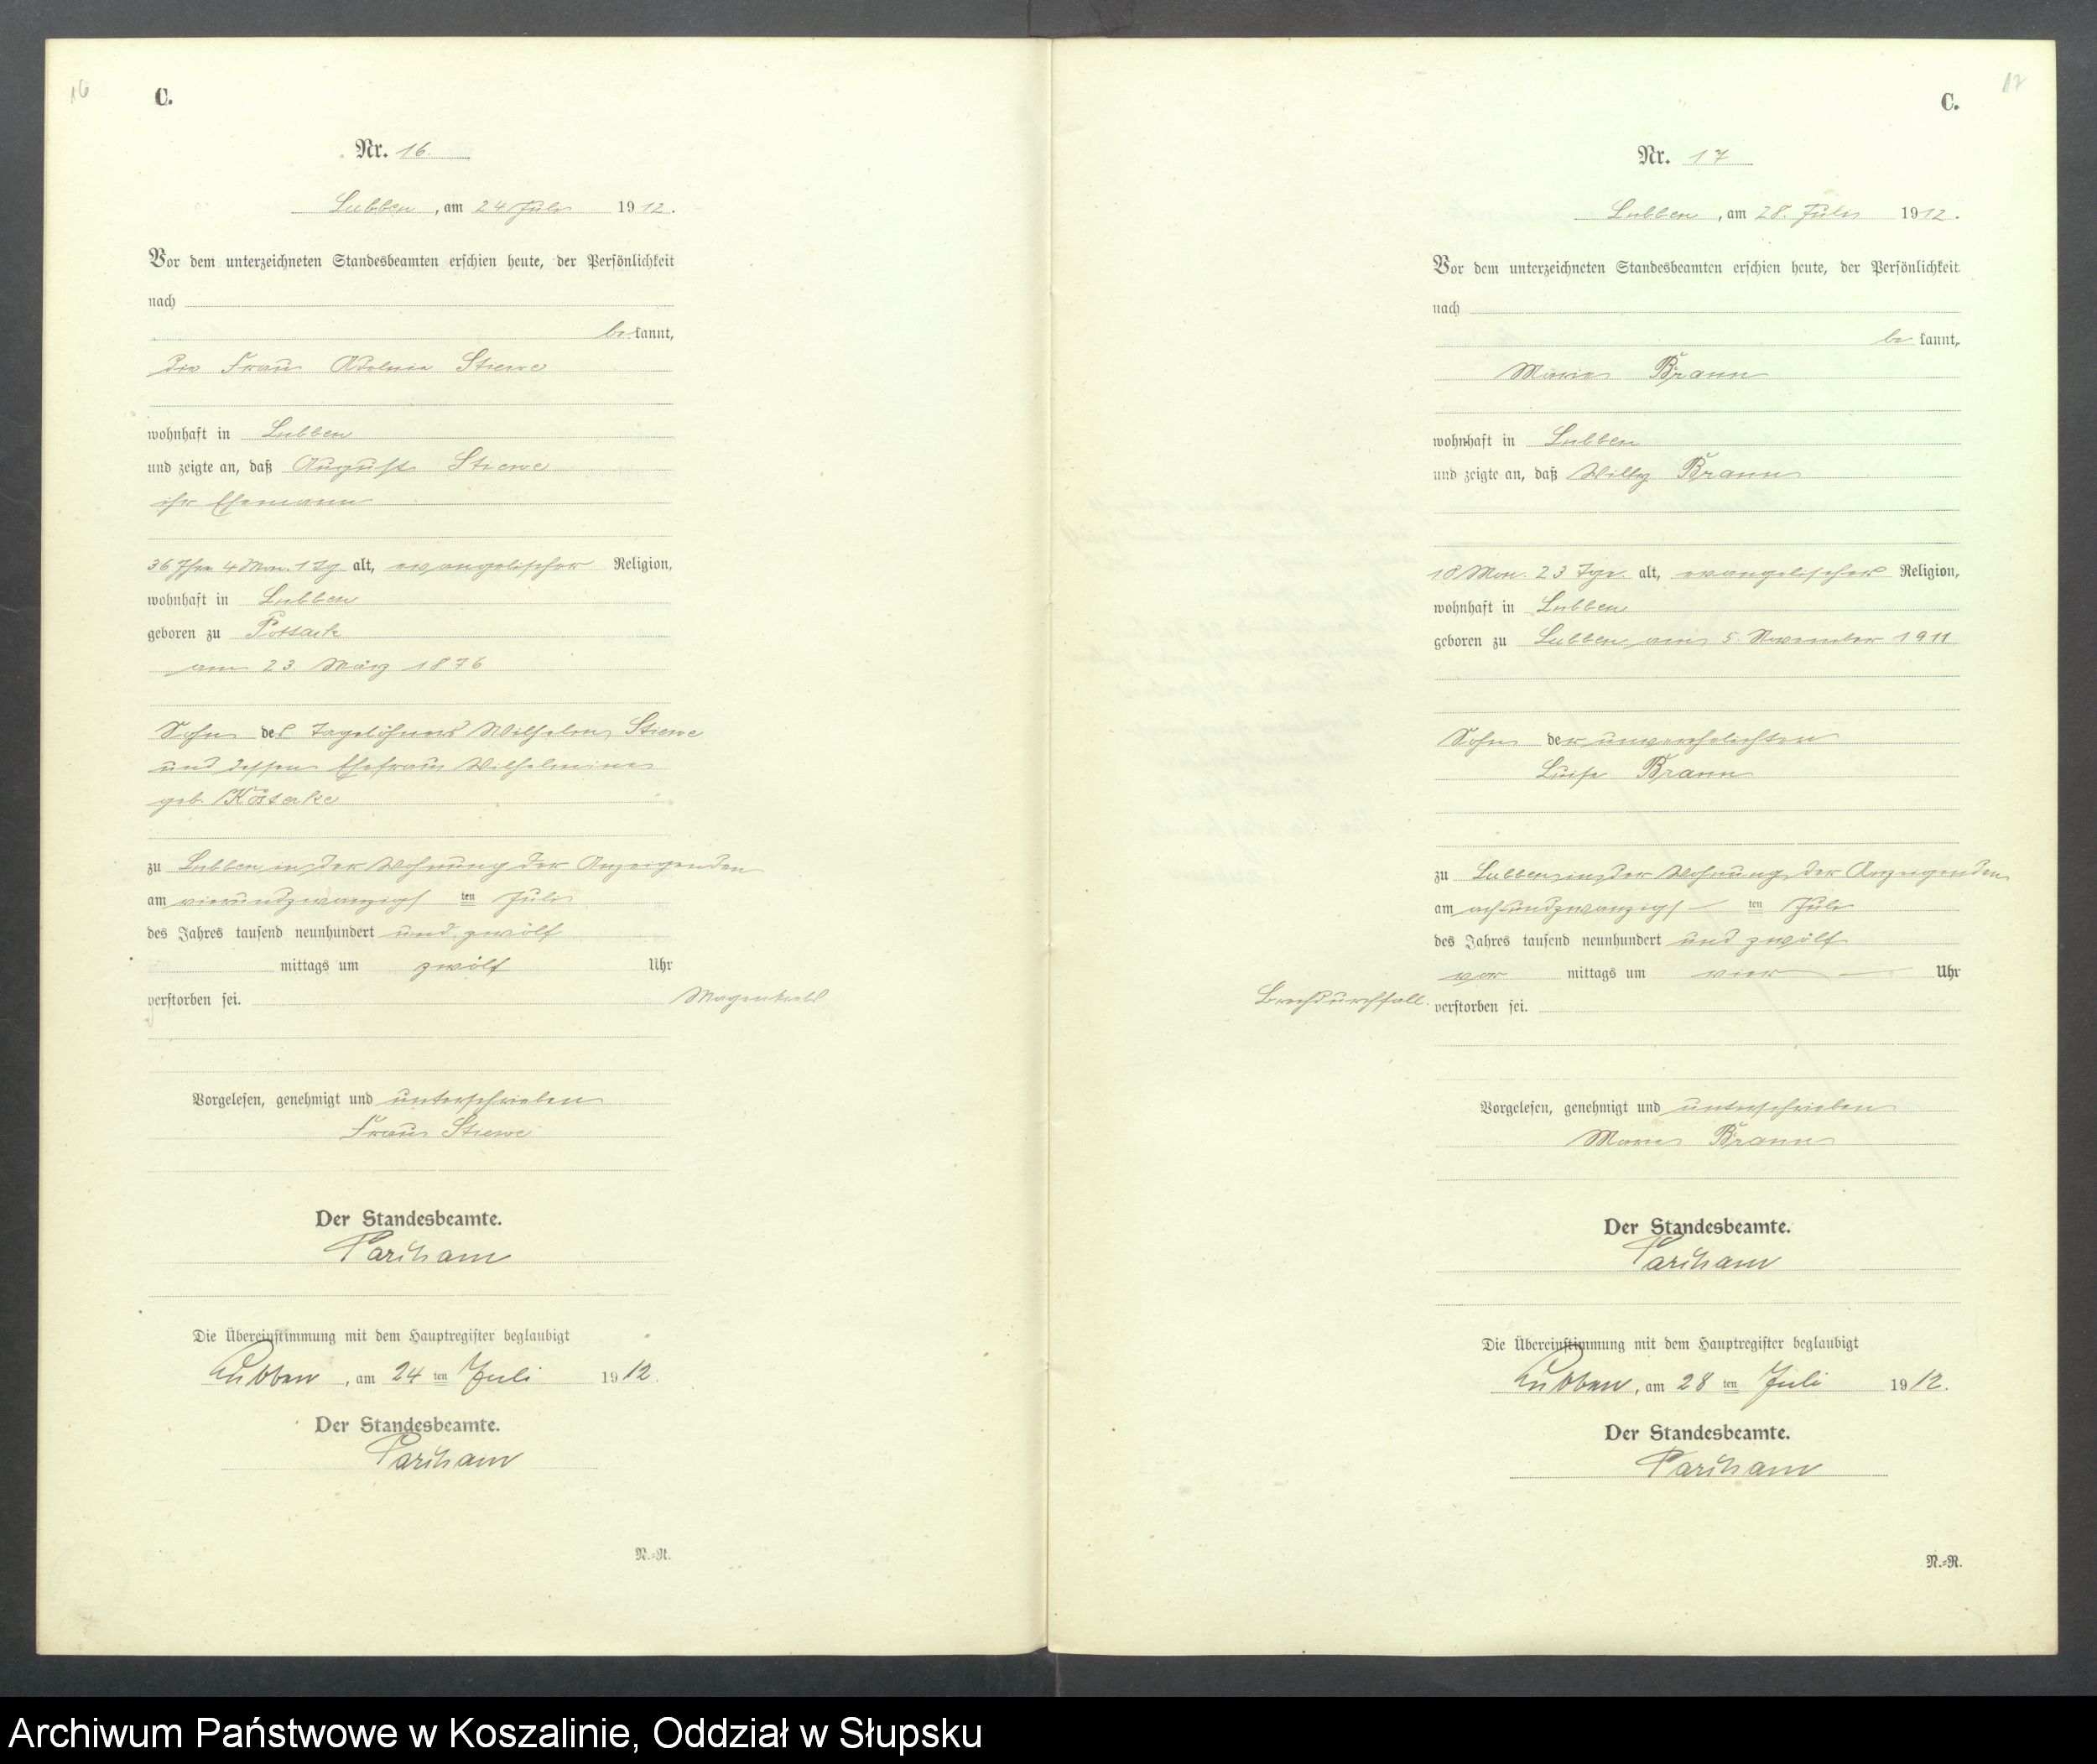 16
C.
Nr. 16.
Lubben, am 24 Juli 1912.
Vor dem unterzeichneten Standesbeamten erschien heute, der Persönlichkeit
nach
be kannt,
die Frau Stiewe
wohnhaft in Lubben
und zeigte an, daß August Stiewe
ihr Ehemann
36 Jhre 4 Mon. 1 Tg. alt, evangelischer Religion,
wohnhaft in Lubben
geboren zu
am 23 März 1876
Sohn des Tagelöhners Wilhelm Stiewe
und dessen Ehefrau Wilhelmine
geb.
zu Lubben in der Wohnung der Anzeigenden
am vierundzwanzigsten Juli
des Jahres tausend neunhundert und zwölf
mittags um zwölf Uhr
verstorben sei. Magenkrebs
Vorgelesen, genehmigt und unterschrieben
Frau Stiewe
Der Standesbeamte.
Die Übereinstimmung mit dem Hauptregister beglaubigt
Lubben, am 24 ten Juli 1912.
Der Standesbeamte.
N.=R.
17
C.
Nr. 17
Lubben, am 28. Juli 1912.
Vor dem unterzeichneten Standesbeamten erschien heute, der Persönlichkeit
nach
be kannt,
Marie Brann
wohnhaft in Lubben
und zeigte an, daß Willy Brann
Mon. 23 Tge. alt, evangelischer Religion,
wohnhaft in Lubben
geboren zu Lubben am 5. November 1911
Sohn der unverehelichten
Luise Brann
zu Lubben in der Wohnung der Anzeigenden
am achtundzwanzigsten Juli
des Jahres tausend neunhundert und zwölf
vor mittags um vier Uhr
Brechdurchfall. verstorben sei.
Vorgelesen, genehmigt und unterschrieben
Marie Brann
Der Standesbeamte.
Die Übereinstimmung mit dem Hauptregister beglaubigt
Lubben, am 28 ten Juli 1912.
Der Standesbeamte.
N.=R.
Archiwum Państwowe w Koszalinie, Oddział w Słupsku